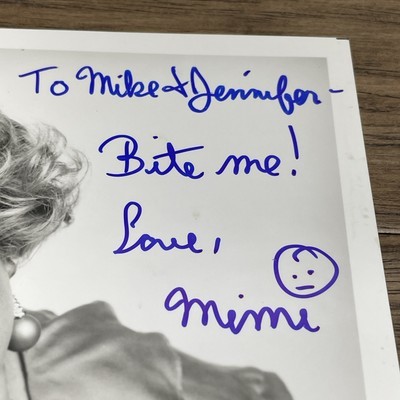 To Mike & Jennifer -
Bite me!
Love,
Mimi